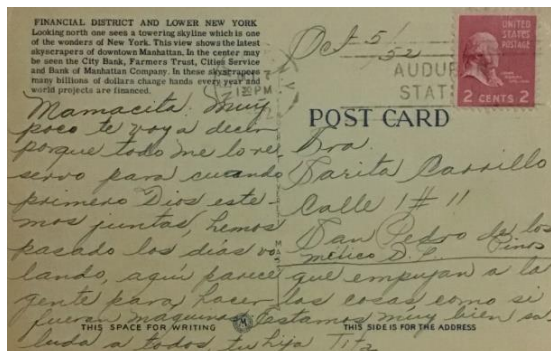 FINANCIAL DISTRICT AND LOWER NEW YORK
Looking north one sees a towering skyline which is one
of the wonders of New York. This view shows the latest
skyscrapers of downtown Manhattan. In the center may
be seen the City Bank, Farmers Trust, Cities Service
and Bank of Manhattan Company. In these skyscrapers
many billions of dollars change hands every year and
world projects are financed.
Oct 5/
52
UNITED
STATES
POSTAGE
2 CENTS 2
AUDU
STAT
1 30 PM
POST CARD
Mamacita: Muy
poco te voy a decir
porque todo me lo re
servo para cuando
primero Dios este-
mos juntas, hemos
pasado los días vo
lando, aquí parece que empujan a la
gente para hacer las cosas, como si
fueran maquinas. Estamos muy bien sa
luda a todos, tu hija Titz
Sra.
Sarita Carrillo
Calle 1 # 11
San Pedro de los
Pinos
México D. F.
THIS SPACE FOR WRITING
THIS SIDE IS FOR THE ADDRESS